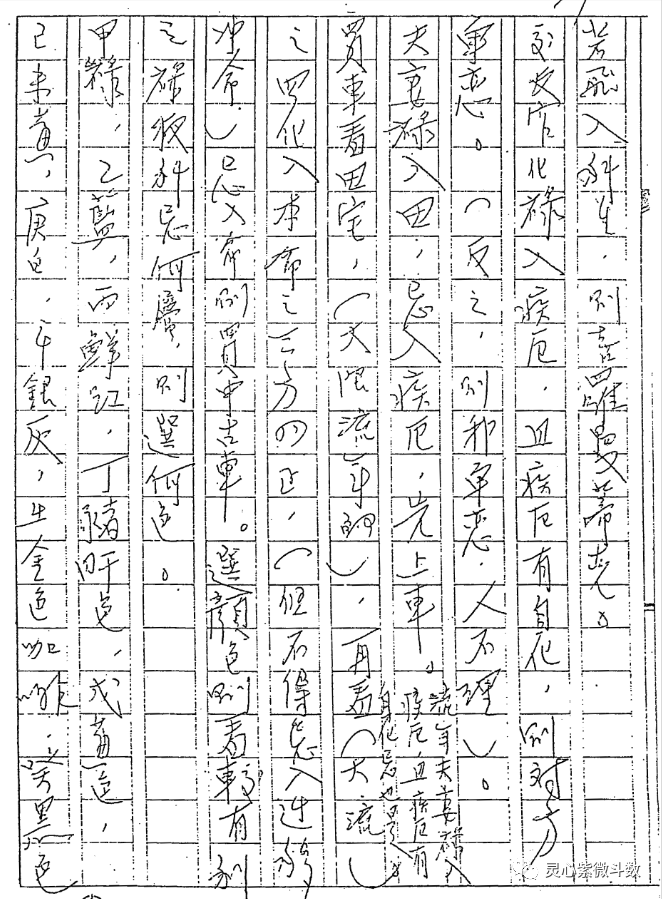 若飛入科生，則喜羅曼蒂克。
交友宮化祿入疾厄，且疾厄有自化，則對方
單戀。（反之，則我單戀，人不理）。
夫妻祿入田，忌入疾厄，先上車。
流年夫妻祿入
疾厄，且疾厄有
自化忌也是。
買車看田宅，（大限流年），再看（大流）
之四化入本命之三方四正，（但不得忌入遷移
沖命）忌入命則買中古車。選顏色則看較有利
之祿權科忌何曆，則選何色。
甲綠，乙藍，丙鮮紅，丁豬肝色，戊黃色，
己未黃，庚白，辛銀灰，壬金色咖啡，癸黑色
灵心紫微斗数